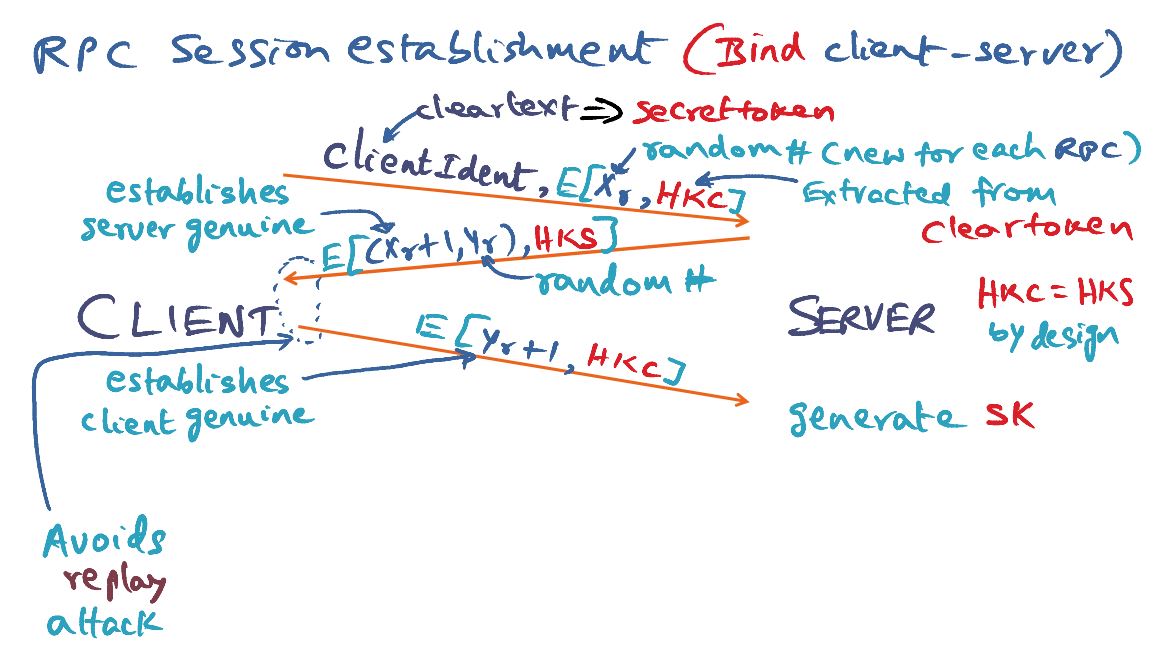 RPC Session establishment (Bind client-server)
cleartext ⇒ secrettoken
ClientIdent, E[Xr, HKC]
random # (new for each RPC)
Extracted from
cleartoken
establishes
server genuine
E[(Xr+1, Yr), HKS]
random #
CLIENT
SERVER
HKC = HKS
by design
E[Yr+1, HKC]
establishes
client genuine
generate SK
Avoids
replay
attack